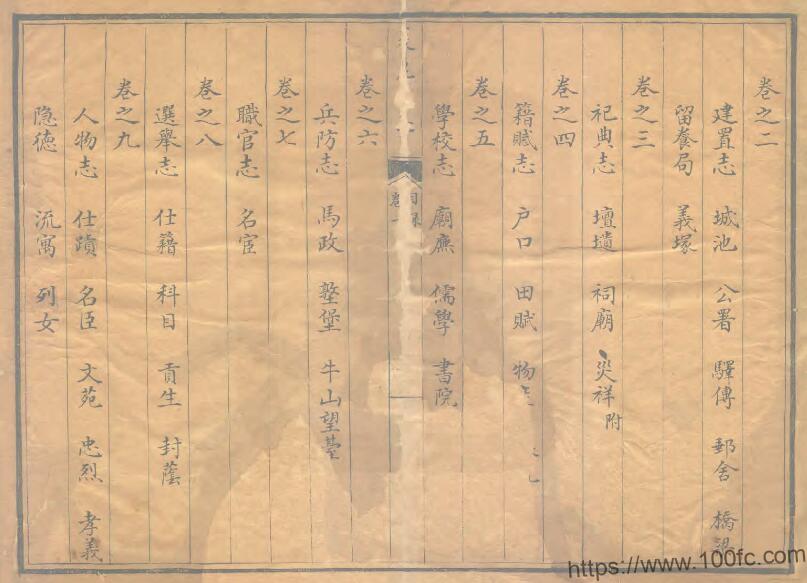 卷之二
建置志 城池 公署 驛傳 郵舍 橋梁
留養局 義塚
卷之三
祀典志 壇壝 祠廟 災祥附
卷之四
籍賦志 戶口 田賦 物
卷之五
學校志 廟廡 儒學 書院
目錄
卷一
卷之六
兵防志 馬政 墩堡 牛山望臺
卷之七
職官志 名宦
卷之八
選舉志 仕籍 科目 貢生 封蔭
卷之九
人物志 仕蹟 名臣 文苑 忠烈 孝義
隐德 流寓 列女
https://www.100fc.com